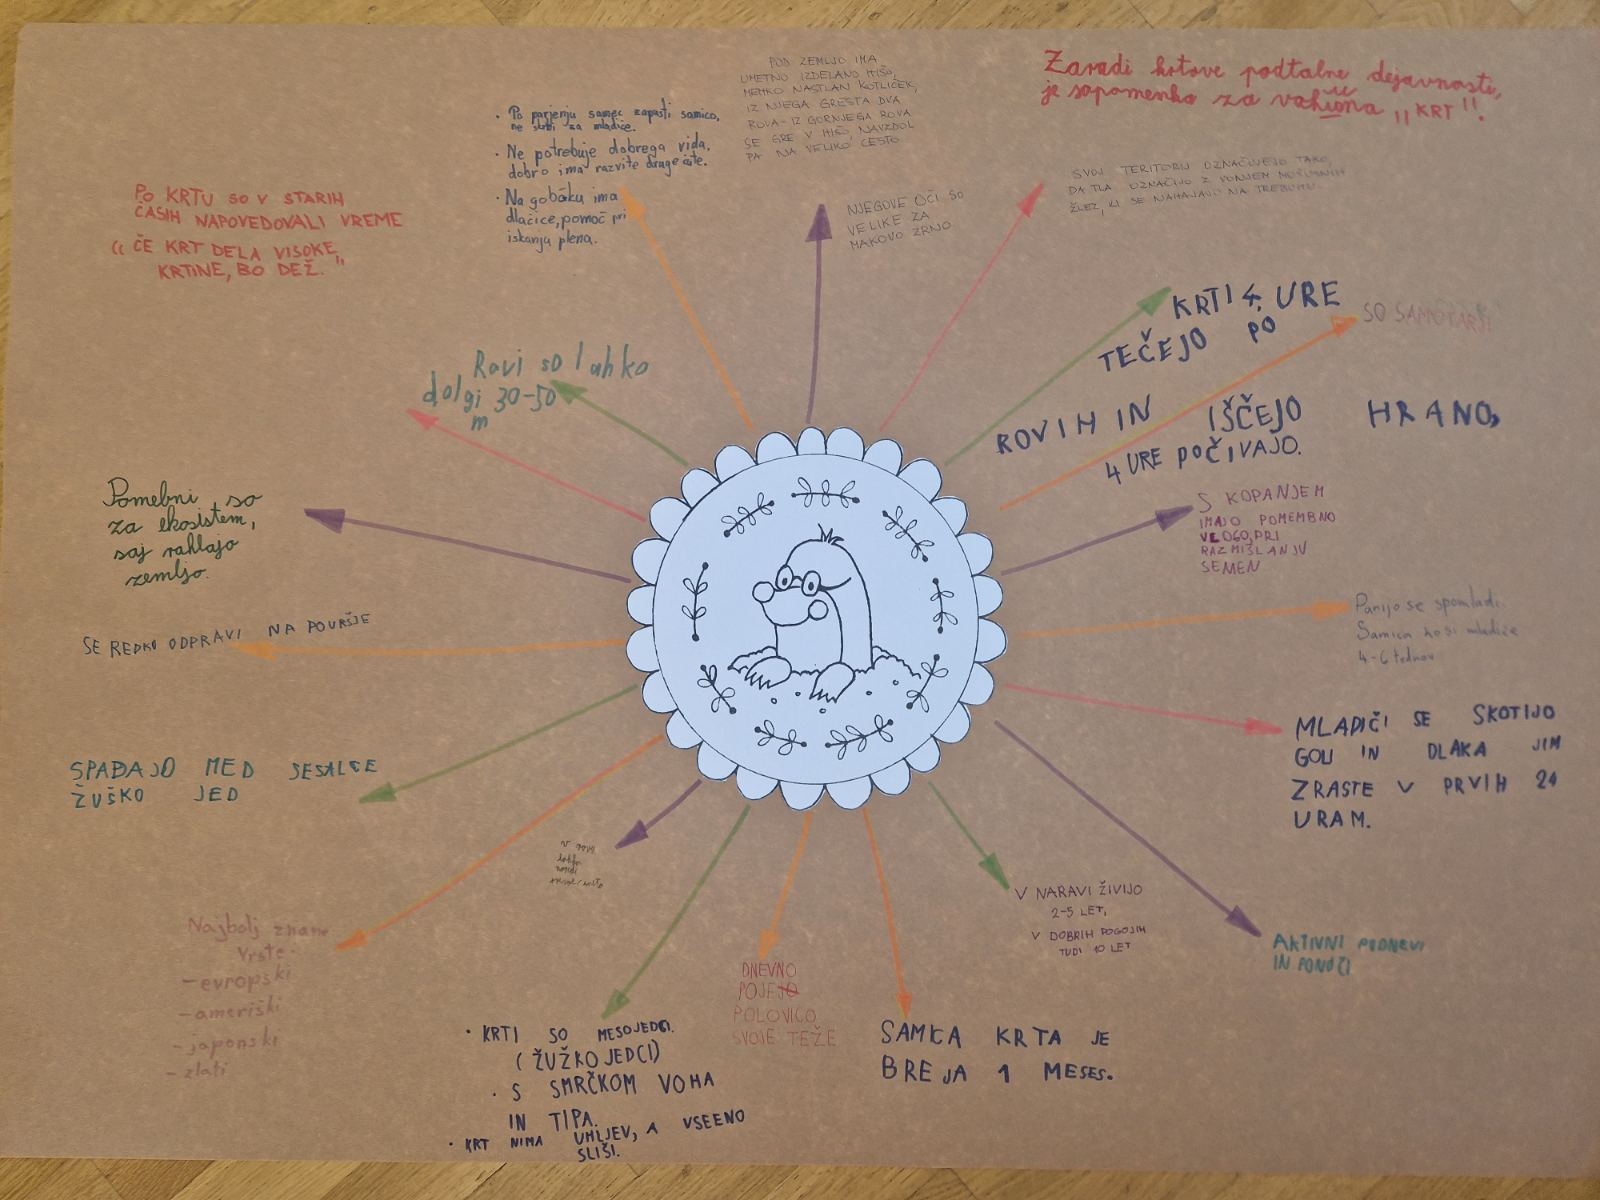 POD ZEMLJO IMA
UMETNO IZDELANO HIŠO,
MEHKO NASTLAN KOTLIČEK,
IZ NJEGA GRESTA DVA
ROVA- IZ GORNJEGA ROVA
SE GRE V HIŠO, NAVZDOL
PA NA VELIKO CESTO
Zaradi krtove podtalne dejavnosti,
je sopomenka za vohuna ,, KRT !!
• Po parjenju samec zapusti samico,
ne skrbi za mladiče.
• Ne potrebuje dobrega vida,
dobro ima razvite druge čute.
• Na gobčku ima
dlačice, pomoč pri
iskanju plena.
PO KRTU SO V STARIH
ČASIH NAPOVEDOVALI VREME
" ČE KRT DELA VISOKE
KRTINE, BO DEŽ. "
NJEGOVE OČI SO
VELIKE ZA
MAKOVO ZRNO
SVOJ TERITORIJ OZNAČUJEJO TAKO,
DA TLA OZNAČIJO Z VONJEM MOŠUSNIH
ŽLEZ, KI SE NAHAJAJO NA TREBUHU.
KRTI 4 URE
TEČEJO PO
ROVIH IN IŠČEJO HRANO,
4 URE POČIVAJO.
SO SAMOTARJI
Rovi so lahko
dolgi 30-50
m
Pomebni so
za ekosistem,
saj rahlajo
zemljo.
S KOPANJEM
IMAJO POMEMBNO
VLOGO, PRI
RAZMIŠLANJU
SEMEN
SE REDKO ODPRAVI NA POVRŠJE
Parijo se spomladi.
Samica nosi mladiče
4-6 tednov
MLADIČI SE SKOTIJO
GOLI IN DLAKA JIM
ZRASTE V PRVIH 24
URAH.
SPADAJO MED SESALCE
ŽUŠKO JED
V rovu
lahko
naredi
V NARAVI ŽIVIJO
2-5 LET,
V DOBRIH POGOJIH
TUDI 10 LET
AKTIVNI PODNEVI
IN PONOČI
Najbolj znane
vrste:
- evropski
- ameriški
- japonski
- zlati
DNEVNO
POJEJO
POLOVICO
SVOJE TEŽE
• KRTI SO MESOJEDCI.
( ŽUŽKOJEDCI)
• S SMRČKOM VOHA
IN TIPA.
• KRT NIMA UHLJEV, A VSEENO
SLIŠI.
SAMICA KRTA JE
BREJA 1 MESES.